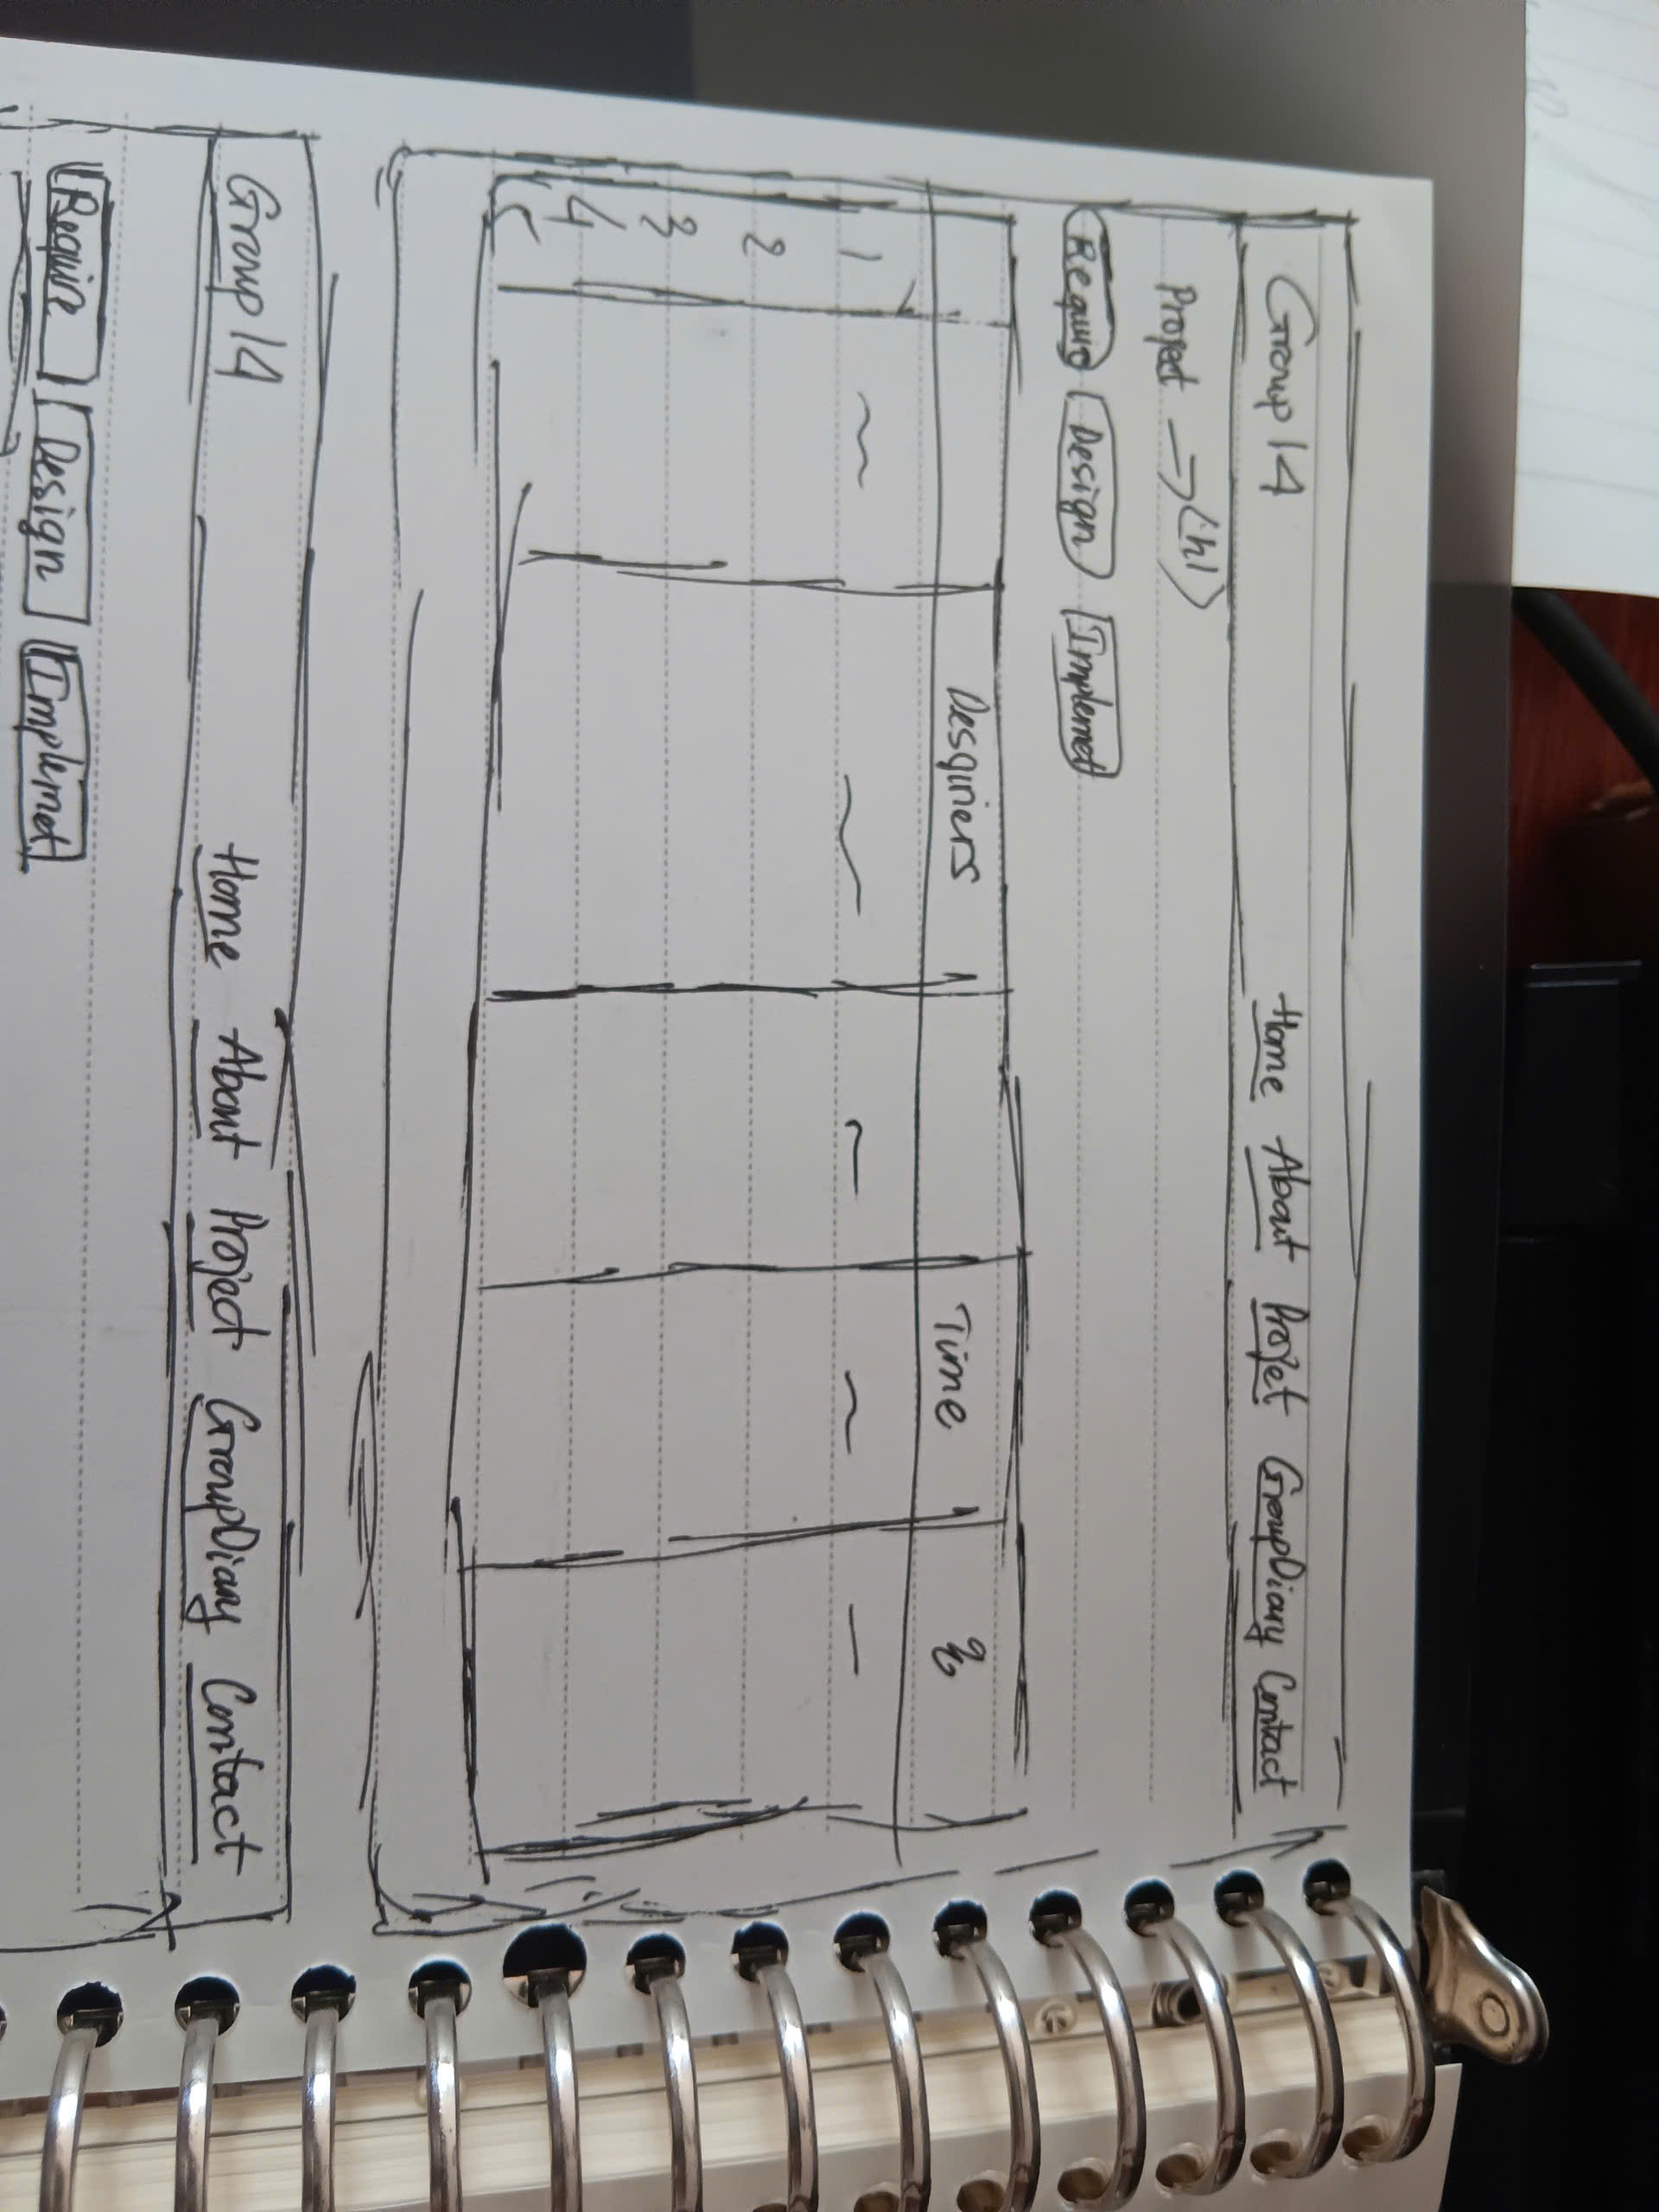 Group 14 Home About Projet GroupDiary Contact
Project → <h1>
Require Design Implemet
Desginers Time
1
2
3
4
5
Group 14 Home About Project GroupDiary Contact
Require Design Implemet